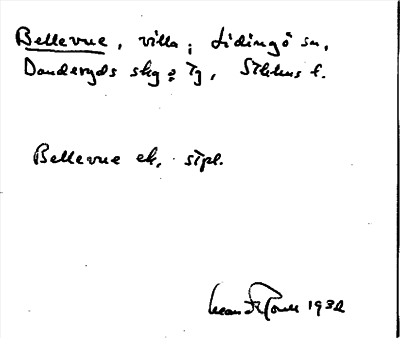 Bellevue, villa, Lidingö sn,
Danderyds skg o tg, Sthlms l.
Bellevue ek, stpl.
1932